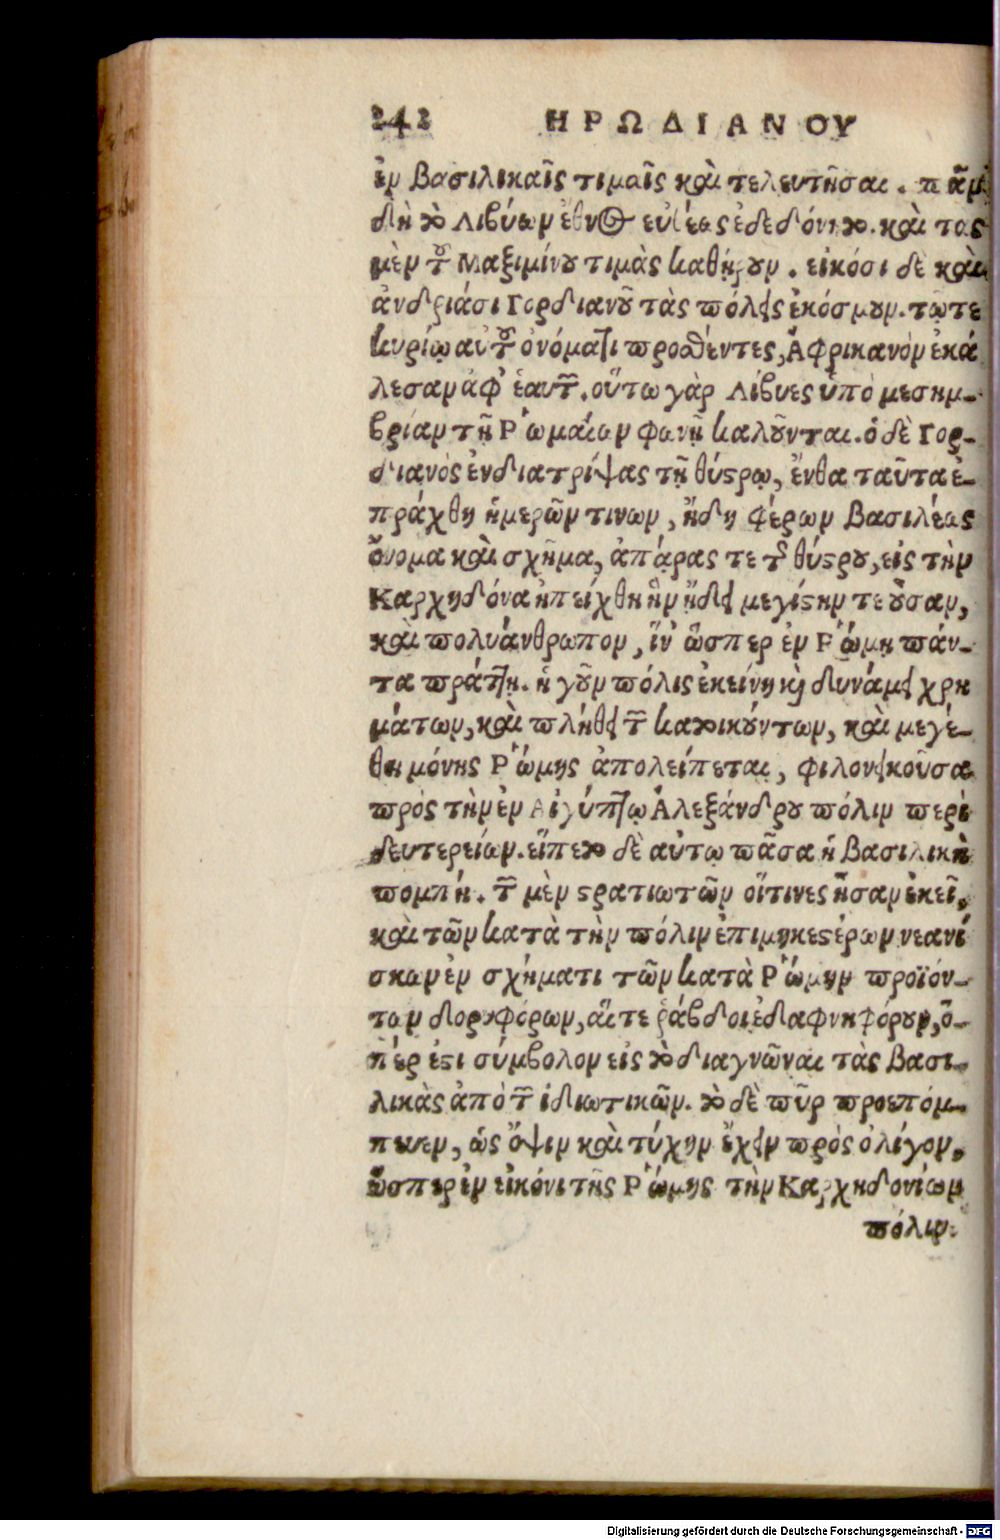 242 ΗΡΩΔΙΑΝΟΥ
ἐν βασιλικαῖς τιμαῖς καὶ τελευτῆσαι. πᾶν
δὴ τὸ Λιβύων ἔθνος εὐθέως ἐδεδόνητο. καὶ τὰς
μὲν τοῦ Μαξιμίνου τιμὰς καθῄρουν. εἰκόσι δὲ καὶ
ἀνδριάσι Γορδιανοῦ τὰς πόλεις ἐκόσμουν. τῷ τε
κυρίῳ αὐτοῦ ὀνόματι προσθέντες, Ἀφρικανὸν ἐκά
λεσαν ἀφ' ἑαυτῶν. οὕτω γὰρ Λίβυες ὑπὸ μεσημ-
βρίαν τῇ Ῥωμαίων φωνῇ καλοῦνται. ὁ δὲ Γορ-
διανὸς ἐνδιατρίψας τῇ θύστρῳ, ἔνθα ταῦτα ἐ-
πράχθη ἡμερῶν τινων, ἤδη φέρων βασιλέως
ὄνομα καὶ σχῆμα, ἀπάρας τε τῆς θύστρου, εἰς τὴν
Καρχηδόνα ἠπείχθη ἣν ᾔδει μεγίστην τε οὖσαν,
καὶ πολυάνθρωπον, ἵν' ὥσπερ ἐν Ῥώμῃ πάν-
τα πράττῃ. ἡ γοῦν πόλις ἐκείνη καὶ δυνάμει χρη
μάτων, καὶ πλήθει τῶν κατοικούντων, καὶ μεγέ-
θη μόνης Ῥώμης ἀπολείπεται, φιλονεικοῦσα
πρὸς τὴν ἐν Αἰγύπτῳ Ἀλεξάνδρου πόλιν περὶ
δευτερείων. εἵπετο δὲ αὐτῳ πᾶσα ἡ βασιλικὴ
πομπή. τῶν μὲν στρατιωτῶν οἵτινες ἦσαν ἐκεῖ,
καὶ τῶν κατὰ τὴν πόλιν ἐπιμηκεστέρων νεανί
σκων ἐν σχήματι τῶν κατὰ Ῥώμην προϊόν-
των δορυφόρων, αἵ τε ῥάβδοι ἐδαφνηφόρουν, ὅ-
πέρ ἐστι σύμβολον εἰς τὸ διαγνῶναι τὰς βασι-
λικὰς ἀπὸ τῶν ἰδιωτικῶν. τὸ δὲ πῦρ προεπόμ-
πευεν, ὡς ὄψιν καὶ τύχην ἔχειν πρὸς ὀλίγον,
ὥσπερ ἐν εἰκόνι τῆς Ῥώμης τὴν Καρχηδονίων
πόλιν.
Digitalisierung gefördert durch die Deutsche Forschungsgemeinschaft - DFG